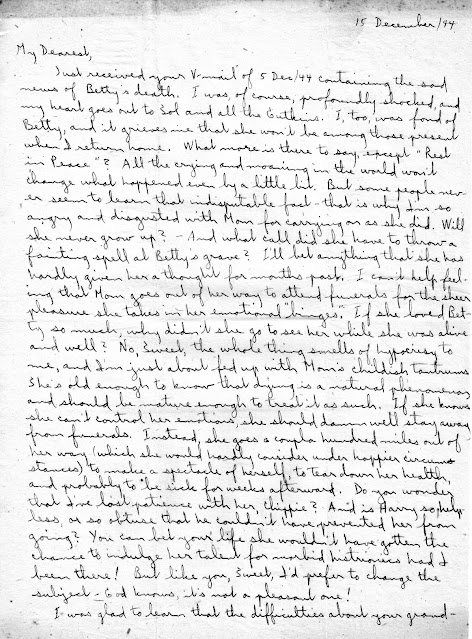 15 December/44
My Dearest,
Just received your V-mail of 5 Dec/44 containing the sad
news of Betty's death. I was, of course, profoundly shocked, and
my heart goes out to Sol and all the Gutkins. I, too, was fond of
Betty, and it grieves me that she won't be among those present
when I return home. What more is there to say, except "Rest
in Peace"? All the crying and moaning in the world won't
change what happened even by a little bit. But some people nev-
er seem to learn that indisputable fact - that is why I'm so
angry and disgusted with Mom for carrying on as she did. Will
she never grow up? - And what call did she have to throw a
fainting spell at Betty's grave? I'll bet anything that she has
hardly given her a thought for months past. I can't help feel-
ing that Mom goes out of her way to attend funerals for the sheer
pleasure she takes in her emotional binges. If she loved Bet-
ty so much, why didn't she go to see her while she was alive
and well? No, Sweet, the whole thing smells of hypocrisy to
me, and I'm just about fed up with Mom's childish tantrums
She's old enough to know that dying is a natural phenomenon,
and should be mature enough to treat it as such. If she knows
she can't control her emotions, she should damn well stay away
from funerals. Instead, she goes a coupla hundred miles out of
her way (which she would hardly consider under happier circum
stances) to make a spectacle of herself, to tear down her health,
and probably to be sick for weeks afterward. Do you wonder
that I've lost patience with her, Chippie? And is Harry so help-
less, or so obtuse that he couldn't have prevented her from
going? You can bet your life she wouldn't have gotten the
chance to indulge her talent for morbid histrionics had I
been there! But like you, Sweet, I'd prefer to change the
subject - God knows, it's not a pleasant one!
I was glad to learn that the difficulties about your grand-